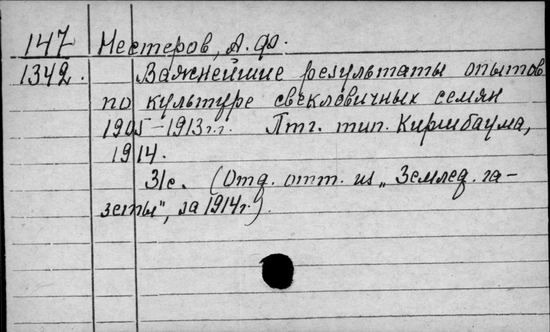 147 Нестеров, А. Ф.
1342. Важнейшие результаты опытов
по культуре свекловичных семян
1905-1913г.г. Птг. тип. Киршбаума,
1914.
31с. (Отд. отт. из „Землед. га-
зеты", за 1914г.).